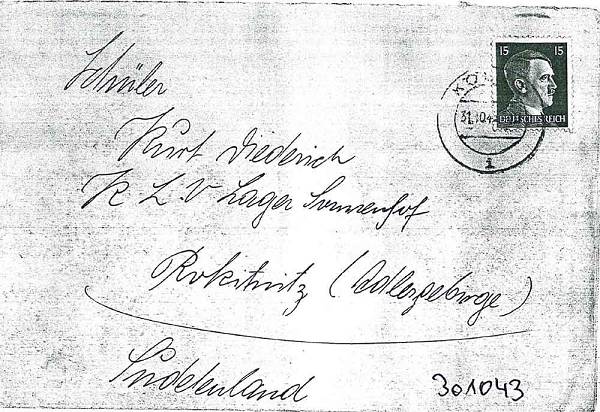 Schüler
Kurt Diederich
K L V Lager Sonnenhof
Rokitnitz (Adlergebirge)
Sudetenland
301043
15 15
DEUTSCHES REICH
31.10.4
i